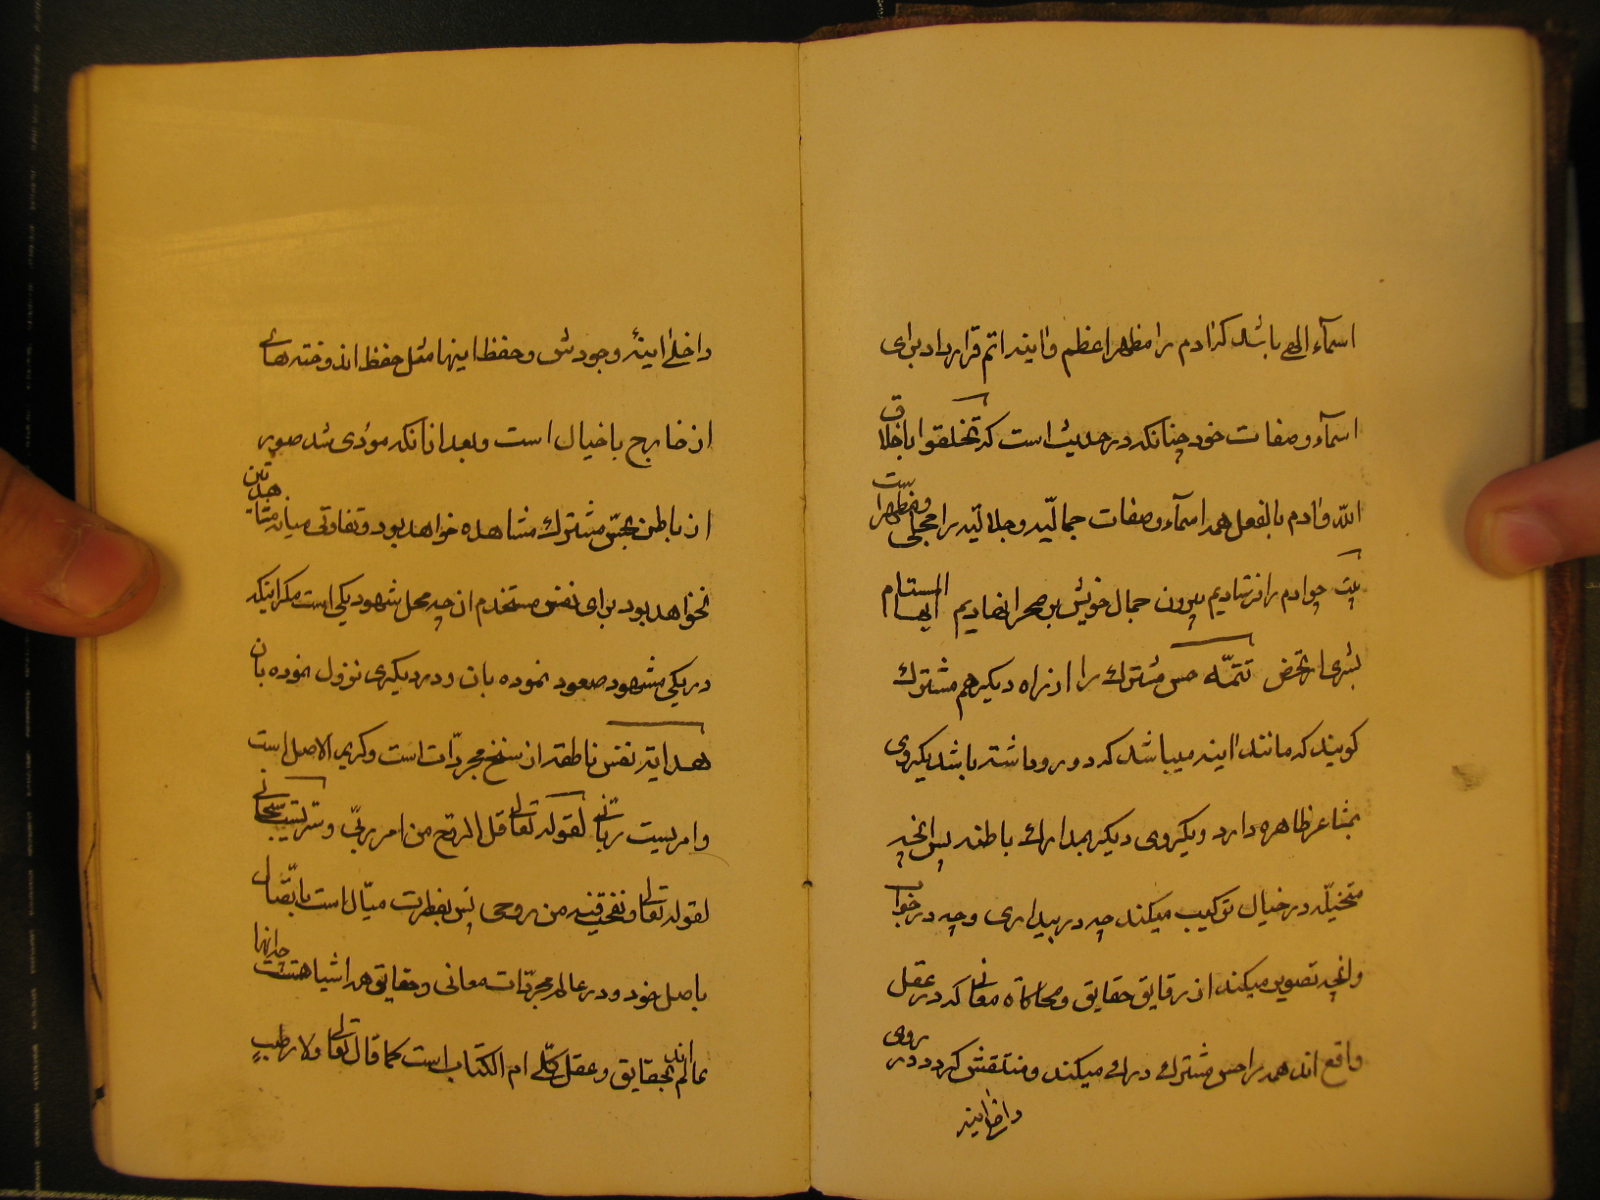 اسمآء الهی باشد که آدم را مظهر اعظم و آینه اتم قرار داد برای
اسمآء و صفات خود چنانکه در حدیث است که تخلقوا باخلاق
الله و آدم بالفعل همه اسمآء و صفات جمالیّه و جلالیّه را مجلی و مظهر است
بیت چو آدم را فرستادیم بیرون جمال خویش بر صحرا نهادیم
تتمّه حس مشترك را از راه دیگر هم مشترك
کویند که مانند آینه میباشد که دو رو داشته باشد یکروی
بمشاعر ظاهره دارد و یکروی دیگر بمدارك باطنه پس آنچه
متخیّله در خیال ترکیب میکند چه در بیداری و چه در خواب
و آنچه تصویر میکند از رقایق حقایق و محاکاة معانی که در عقل
واقع اند همه را حس مشترك درك میکند و منتقش کردد در روی
داخل آینه
داخل آینهٔ وجودش و حفظ اینها مثل حفظ اندوخته های
از خارج با خیال است و بعد از آنکه مؤدی شد صور
از باطن بحسّ مشترك مشاهده خواهد بود و تفاوتی میانه مشاهدتین
نخواهد بود برای نفس مستخدم از چه محل شهود یکی است مکر اینکه
در یکی مشهود صعود نموده بآن و در دیگری نزول نموده بآن
هدایة نفس ناطقه از سنخ مجردّات است و کریم الاصل است
و امریست ربّانی لقوله تعالی قل الروح من امر ربّی و سرّیست سبحانی
لقوله تعالی و نفخت فیه من روحی پس بفطرت میّال است باتّصال
باصل خود و در عالم مجردّات معانی و حقایق همه اشیا هست چه آنها
عالم اند بحقایق و عقل کلّی ام الکتاب است کما قال تعالی و لا رطبٍ